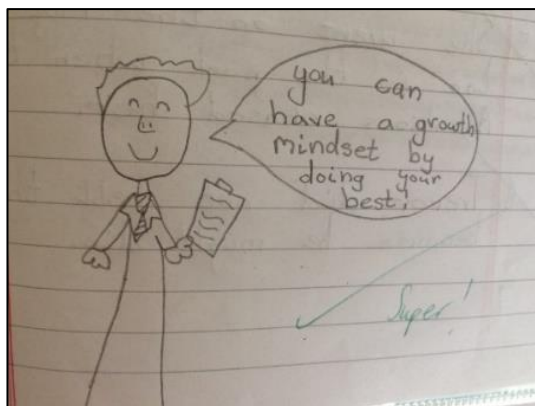 you can
have a growth
mindset by
doing your
best!
Super!